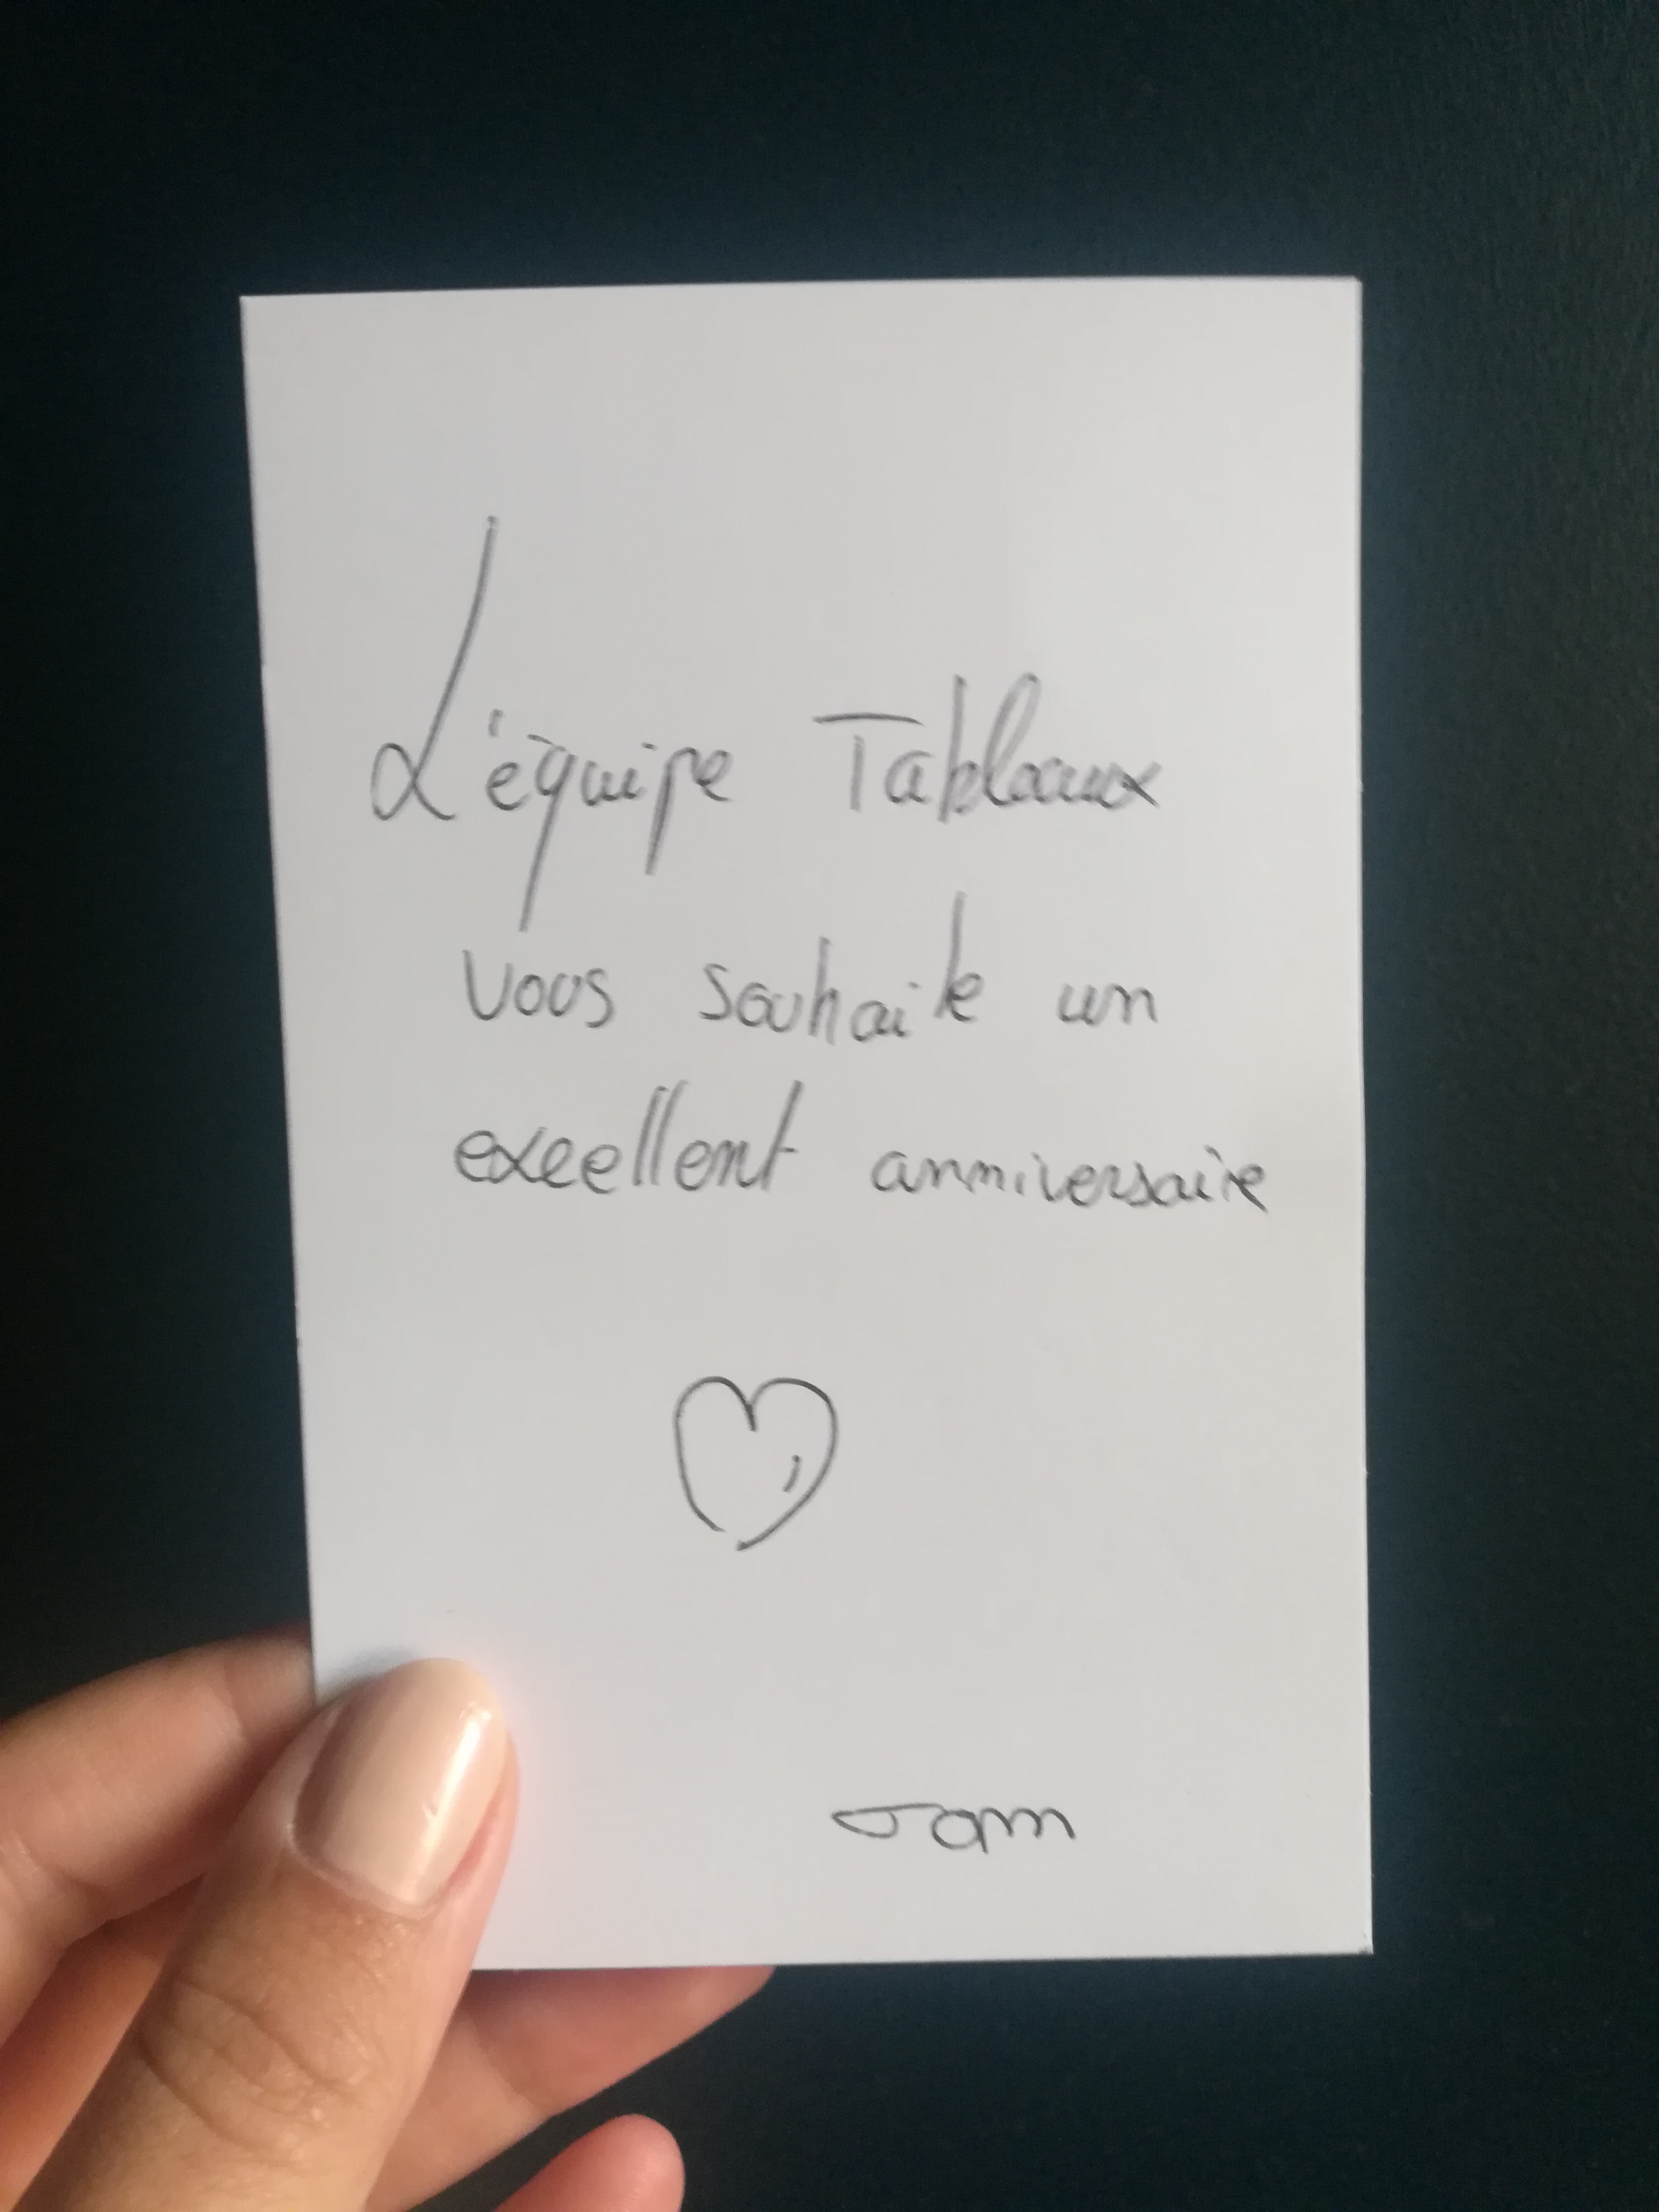 L'équipe Tableaux
vous souhaite un
excellent anniversaire
Tom